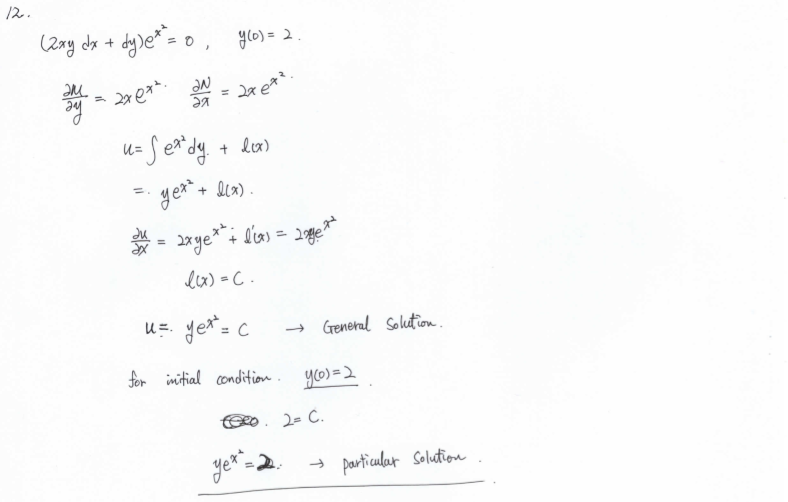 12.
(2xy dx + dy)e^{x^2} = 0 , y(0) = 2 .
∂M/∂y = 2xe^{x^2} . ∂N/∂x = 2xe^{x^2} .
u = ∫ e^{x^2} dy. + l(x)
= . ye^{x^2} + l(x) .
∂u/∂x = 2xye^{x^2} + l'(x) = 2xye^{x^2}
l(x) = C .
u = . ye^{x^2} = C → General Solution .
for initial condition . y(0) = 2 .
. 2 = C .
ye^{x^2} = 2 . → particular Solution .